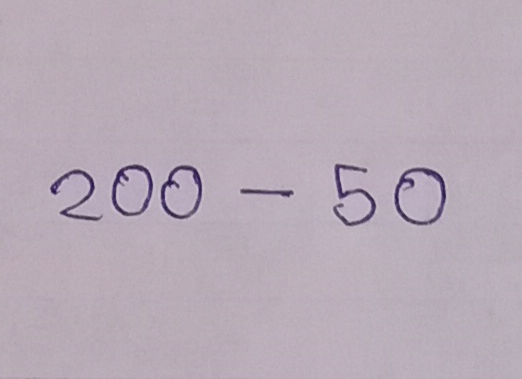 200 - 50